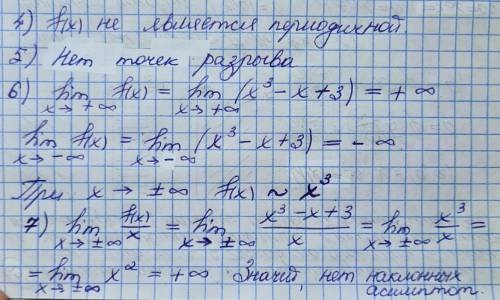 4) f(x) не является периодичной
5) Нет точек разрыва
6) lim x→+∞ f(x) = lim x→+∞ (x³ - x + 3) = + ∞
lim x→-∞ f(x) = lim x→-∞ (x³ - x + 3) = - ∞
При x → ±∞ f(x) ~ x³
7) lim x→±∞ f(x)/x = lim x→±∞ (x³ - x + 3)/x = lim x→±∞ x³/x =
= lim x→±∞ x² = +∞ Значит, нет наклонных
асимптот.